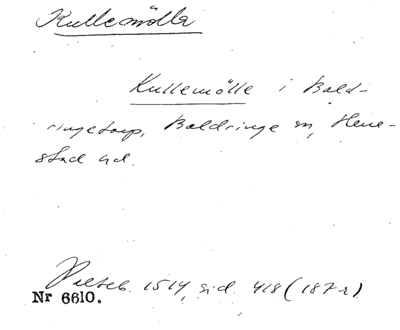 Kullemölla
Kullemölle i Bald-
ringetorp, Baldringe sn, Herre-
stad hd.
Palteb. 1514, sid. 418 (187 r)
Nr 6610.